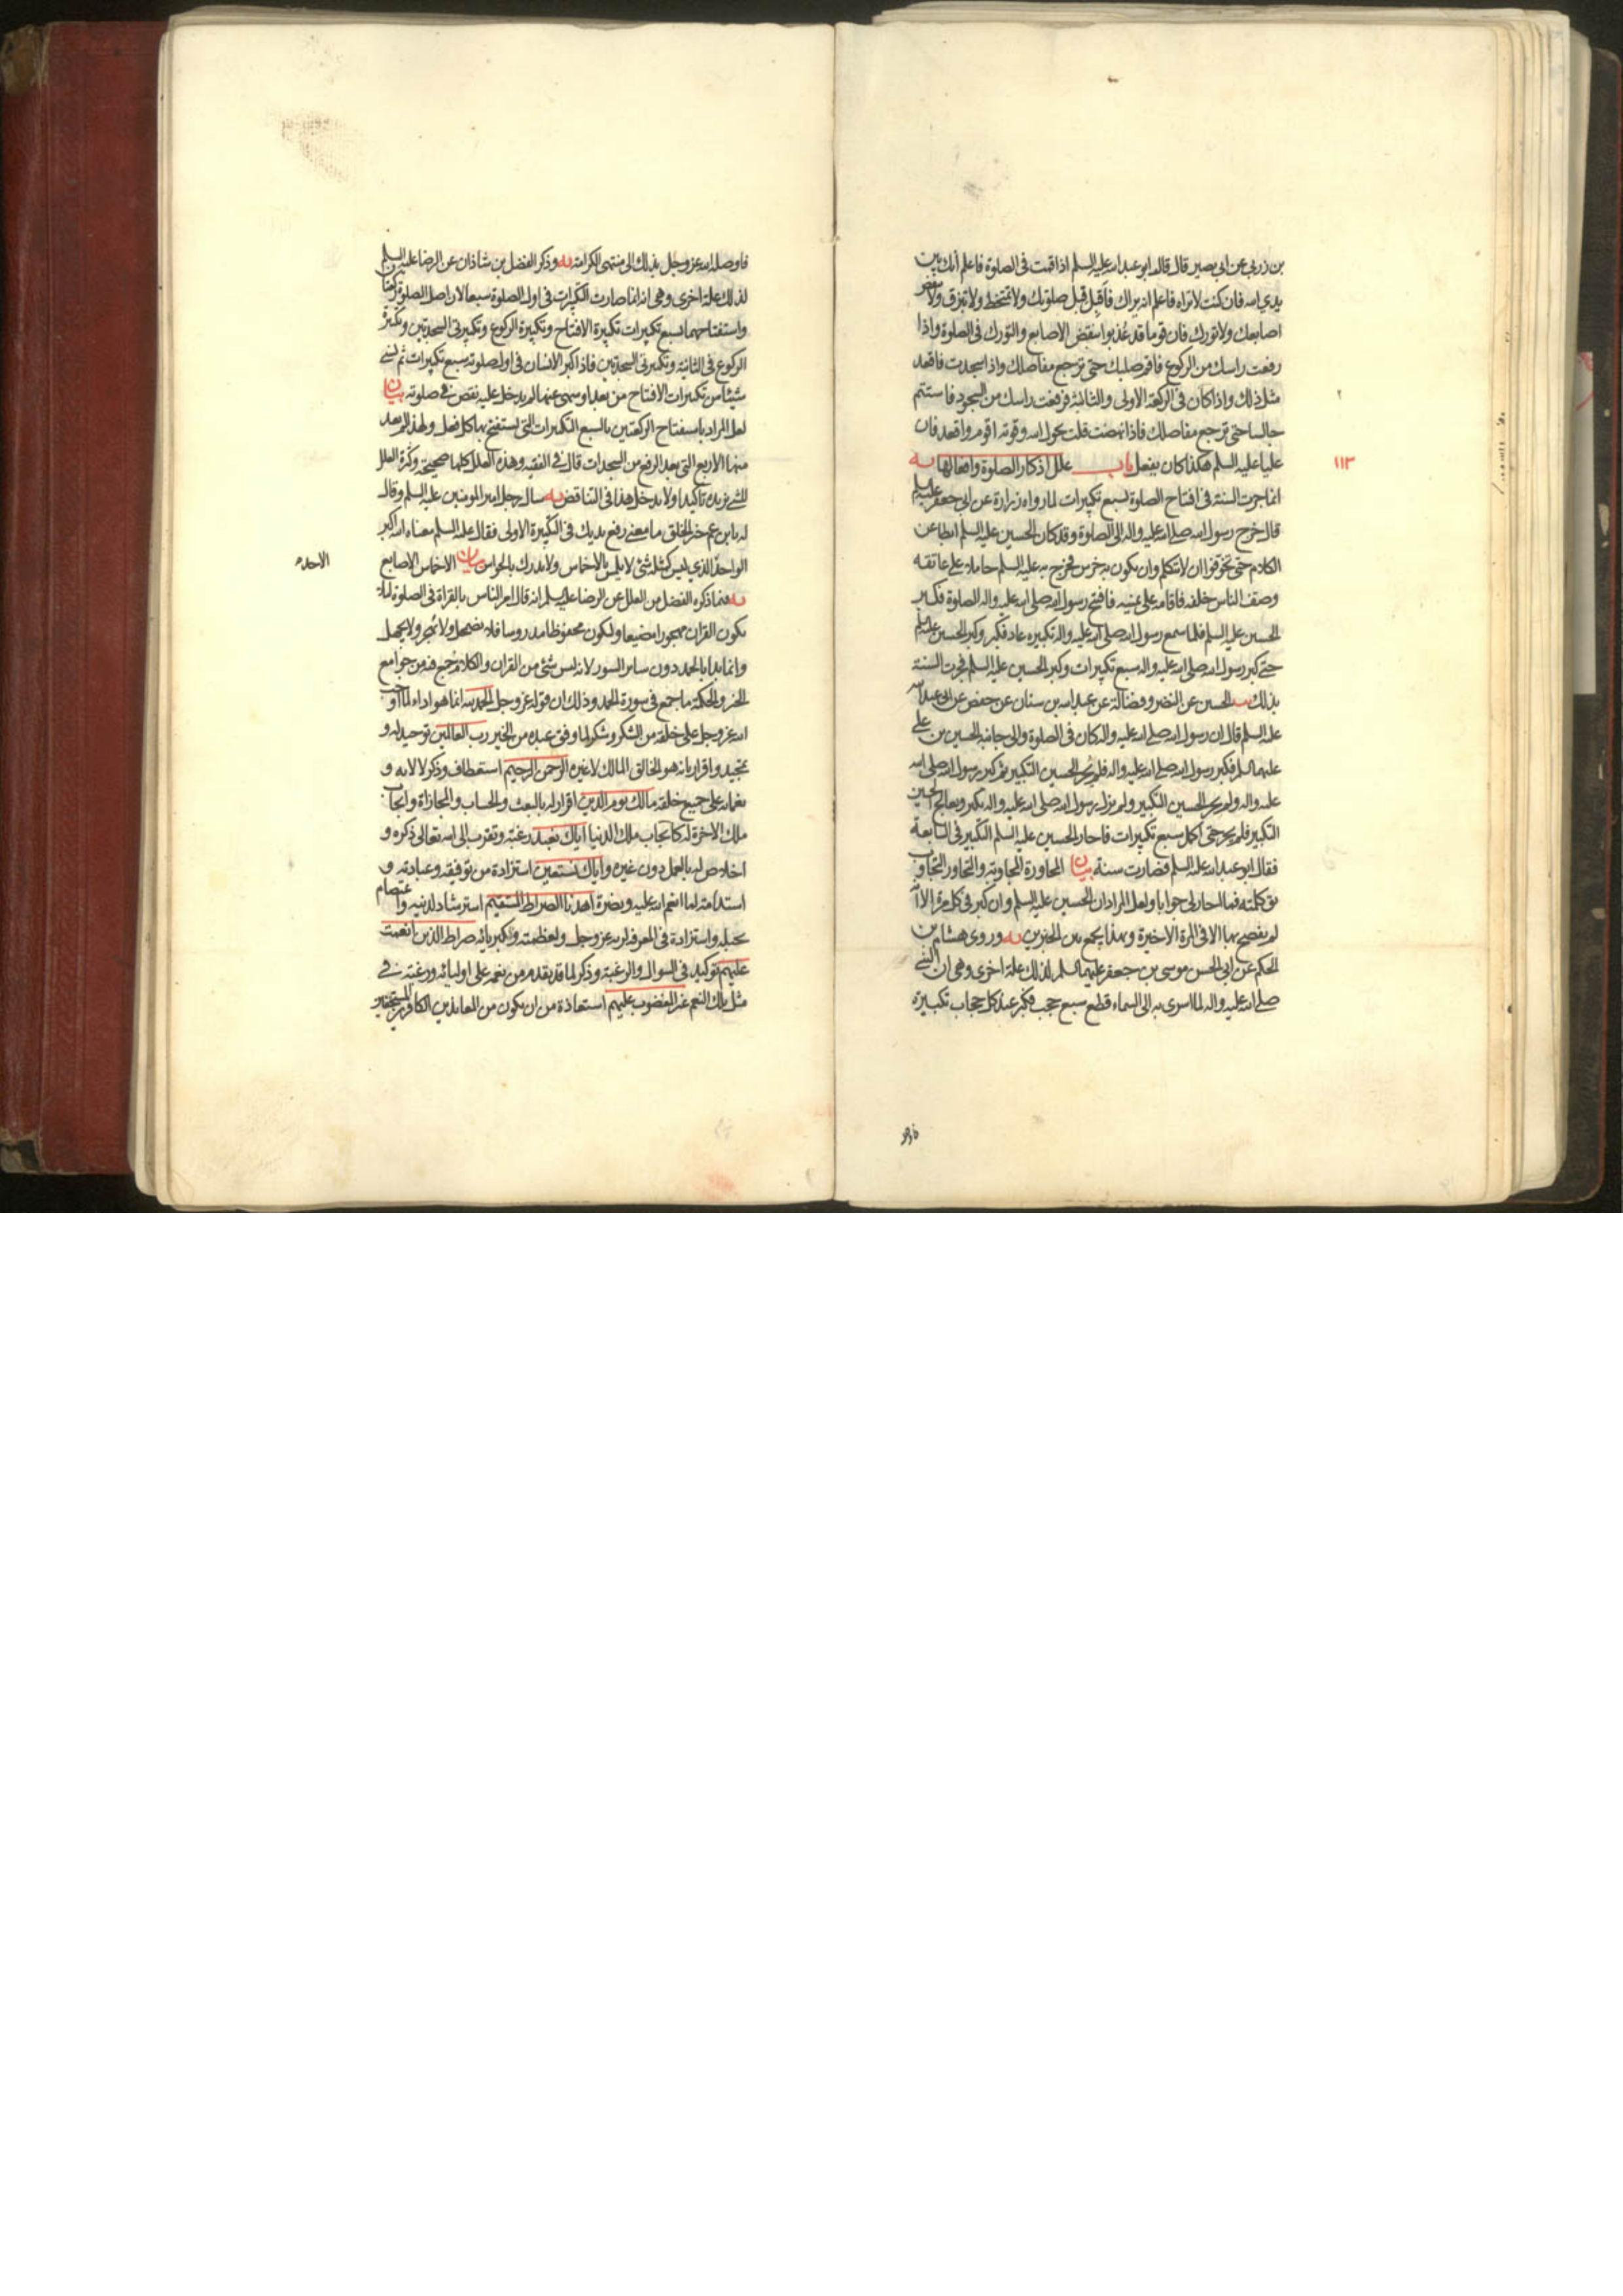 بن زربي عن ابى بصير قال قال ابو عبد الله عليه السلم اذا قمت فى الصلوة فاعلم انك بين
يدي الله فان كنت لا تراه فاعلم انه يراك فاقبل قبل صلوتك ولا تمتخط ولا تبزق ولا تنقض
اصابعك ولا تورك فان قوما قد عُذبوا بنقض الاصابع والتورك فى الصلوة واذا
رفعت راسك من الركوع فاقم صلبك حتى ترجع مفاصلك واذا سجدت فاقعد
مثل ذلك واذا كان فى الركعة الاولى والثانية فرفعت راسك من السجود فاستتم
جالسا حتى ترجع مفاصلك فاذا نهضت فقلت بحول الله وقوته اقوم واقعد فان
عليا عليه السلم هكذا كان يفعل باب علل اذكار الصلوة وافعالها يه
١١٣
انما جرت السنة فى افتتاح الصلوة بسبع تكبيرات لما رواه زرارة عن ابى جعفر عليه السلم
قال خرج رسول الله صلى الله عليه واله الى الصلوة وقد كان الحسين عليه السلم ابطا عن
الكلام حتى تخوفوا ان لا يتكلم وان يكون به خرس فخرج به عليه السلم حامله على عاتقه
وصف الناس خلفه فاقامه على يمينه فافتتح رسول الله صلى الله عليه واله الصلوة فكبر
الحسين عليه السلم فلما سمع رسول الله صلى الله عليه واله تكبيره عاد فكبر وكبر الحسين عليه السلم
حتى كبر رسول الله صلى الله عليه واله سبع تكبيرات وكبر الحسين عليه السلم فجرت السنة
بذلك يب الحسين عن النضر وفضالة عن عبد الله بن سنان عن حفص عن ابى عبد الله
عليه السلم قال ان رسول الله صلى الله عليه واله كان فى الصلوة والى جانبه الحسين بن على
عليهما السلم فكبر رسول الله صلى الله عليه واله فلم يُحر الحسين التكبير ثم كبر رسول الله صلى الله
عليه واله ولم يحر الحسين التكبير ولم يزل رسول الله صلى الله عليه واله يكبر ويعالج الحسين
التكبير فلم يحر حتى اكمل سبع تكبيرات فاحار الحسين عليه السلم التكبير فى السابعة
فقال ابو عبد الله عليه السلم فصارت سنة بيان المحاورة المجاوبة والتحاور التجاوب
يق كلمته فما احار لى جوابا ولعل المراد ان الحسين عليه السلم وان كبر فى كل مرة الا انه
لم يفصح بها الا فى المرة الاخيرة وبهذا يجمع بين الخبرين يه وروى هشام بن
الحكم عن ابى الحسن موسى بن جعفر عليهما السلم لذلك علة اخرى وهى ان النبى
صلى الله عليه واله لما اسرى به الى السماء قطع سبع حجب فكبر عند كل حجاب تكبيرة
فاوصله الله عز وجل بذلك الى منتهى الكرامة يه وذكر الفضل بن شاذان عن الرضا عليه السلم
لذلك علة اخرى وهى انه انما صارت التكبيرات فى اول الصلوة سبعا لان اصل الصلوة ركعتان
واستفتاحهما بسبع تكبيرات تكبيرة الافتتاح وتكبيرة الركوع وتكبيرتى السجدتين وتكبيرة
الركوع فى الثانية وتكبيرتى السجدتين فاذا كبر الانسان فى اول صلوته سبع تكبيرات ثم نسى
شيئا من تكبيرات الافتتاح من بعد او سهى عنها لم يدخل عليه نقص فى صلوته بيان
لعل المراد باستفتاح الركعتين بالسبع التكبيرات التى يستفتح بها كل فعل ولهذا لم يعد
منها الاربع التى بعد الرفع من السجدات قال فى الفقيه وهذه العلل كلها صحيحة وكثرة العلل
للشئ يزيده تاكيدا ولا يدخل هذا فى التناقض يه سال رجل امير المومنين عليه السلم وقال
له يا بن عم خير الخلق ما معنى رفع يديك فى التكبيرة الاولى فقال عليه السلم معناه الله اكبر
الواحد الذي ليس كمثله شئ لا يلمس بالاخماس ولا يدرك بالحواس بيان الاخماس الاصابع
الاحد
يه فيما ذكره الفضل من العلل عن الرضا عليه السلم انه قال امر الناس بالقراة فى الصلوة لئلا
يكون القران مهجورا مضيعا وليكون محفوظا مدروسا فلا يضمحل ولا يُهجر ولا يجهل
وانما بدا بالحمد دون سائر السور لانه ليس شئ من القران والكلام جمع فيه من جوامع
الخير والحكمة ما جمع فى سورة الحمد وذلك ان قوله عز وجل الحمد لله انما هو اداء لما اوجب
الله عز وجل على خلقه من الشكر وشكر لما وفق عبده من الخير رب العالمين توحيد له و
تمجيد واقرار بانه هو الخالق المالك لا غيره الرحمن الرحيم استعطاف وذكر لالائه و
نعمائه على جميع خلقه مالك يوم الدين اقرار له بالبعث والحساب والمجازاة وايجاب
ملك الاخرة له كايجاب ملك الدنيا اياك نعبد رغبة وتقرب الى الله تعالى ذكره و
اخلاص له بالعمل دون غيره واياك نستعين استزادة من توفيقه وعبادته و
استدامة لما انعم الله عليه ونصرة اهدنا الصراط المستقيم استرشاد لدينه واعتصام
بحبله واستزادة فى المعرفة لربه عز وجل ولعظمته وكبريائه صراط الذين انعمت
عليهم توكيد فى السوال والرغبة وذكر لما قد تقدم من نعمه على اوليائه ورغبة فى
مثل تلك النعم غير المغضوب عليهم استعاذة من ان يكون من المعاندين الكافرين المستخفين